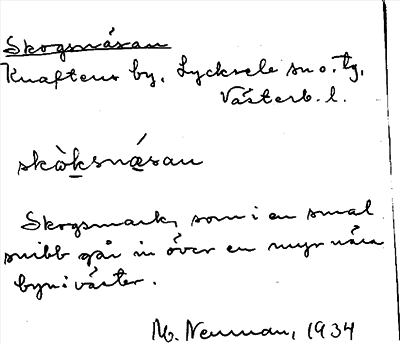 Skogsnäsan
Knaftens by, Lycksele sn o. tg,
Västerb. l.
skòksnǽsan
Skogsmark, som i en smal
snibb går in över en myr nära
byn i väster.
M. Neuman, 1934